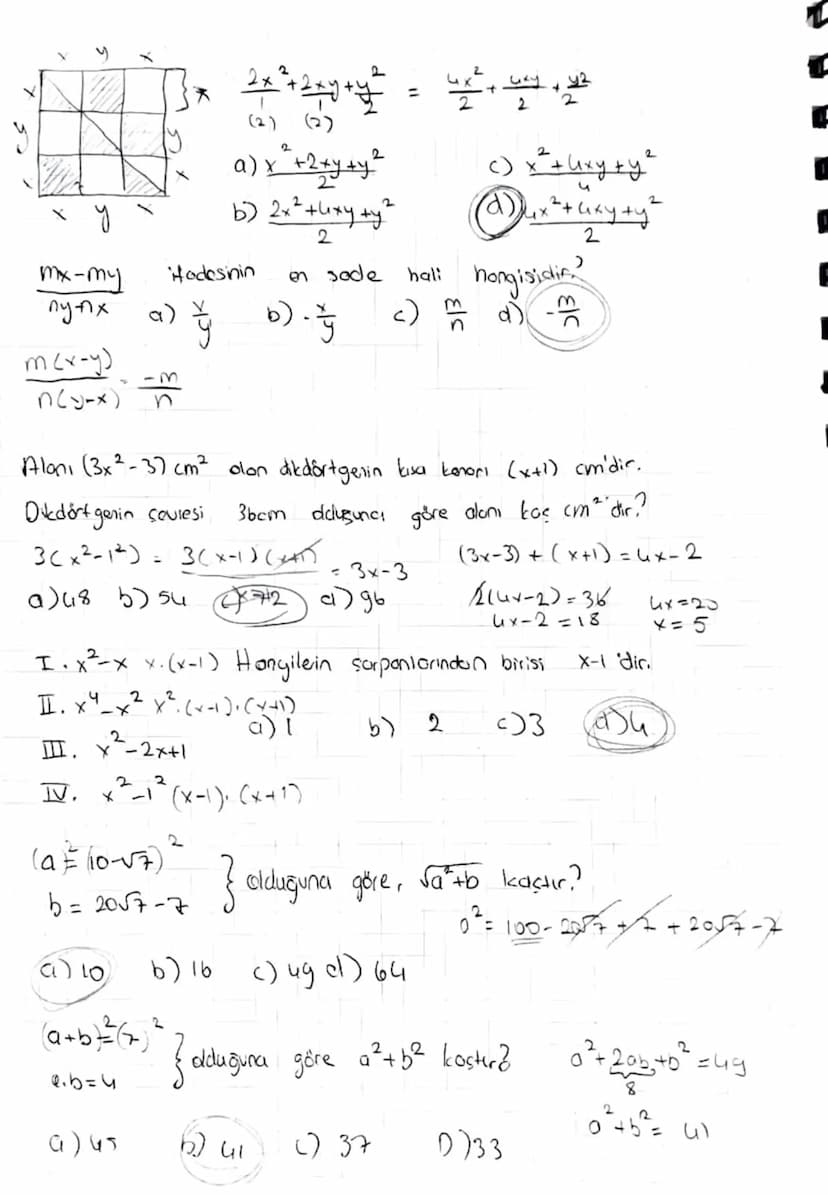 x y x
x y x
y y x
x y x
2x²/1 + 2xy/1 + y²/2 = 4x²/2 + 4xy/2 + y²/2
(2) (2)
a) x²+2xy+y²/2 c) x²+4xy+y²/4
b) 2x²+4xy+y²/2 d) 4x²+4xy+y²/2
mx-my/ny-nx ifadesinin en sade hali hangisidir?
a) x/y b) -x/y c) m/n d) -m/n
m(x-y)/n(y-x) = -m/n
Alanı (3x²-3) cm² olan dikdörtgenin kısa kenarı (x+1) cm'dir.
Dikdörtgenin çevresi 36cm olduğuna göre alanı kaç cm²'dir?
3(x²-1²) = 3(x-1)(x+1) = 3x-3 (3x-3)+(x+1)=4x-2
a) 48 b) 54 c) 72 d) 96 2(4x-2)=36 4x=20
4x-2=18 x=5
I. x²-x x.(x-1) Hangilerin çarpanlarından birisi x-1 'dir.
II. x⁴-x² x².(x-1).(x+1)
a) 1 b) 2 c) 3 d) 4
III. x²-2x+1
IV. x²-1² (x-1).(x+1)
(a)²=(10-√7)²
b = 20√7-7 } olduğuna göre, √a²+b kaçtır?
a² = 100-20√7+7+20√7-7
a) 10 b) 16 c) 49 d) 64
(a+b)²=(7)²
a.b=4 } olduğuna göre a²+b² kaçtır? a²+2ab+b²=49
8
a²+b²= 41
a) 45 b) 41 c) 37 D) 33